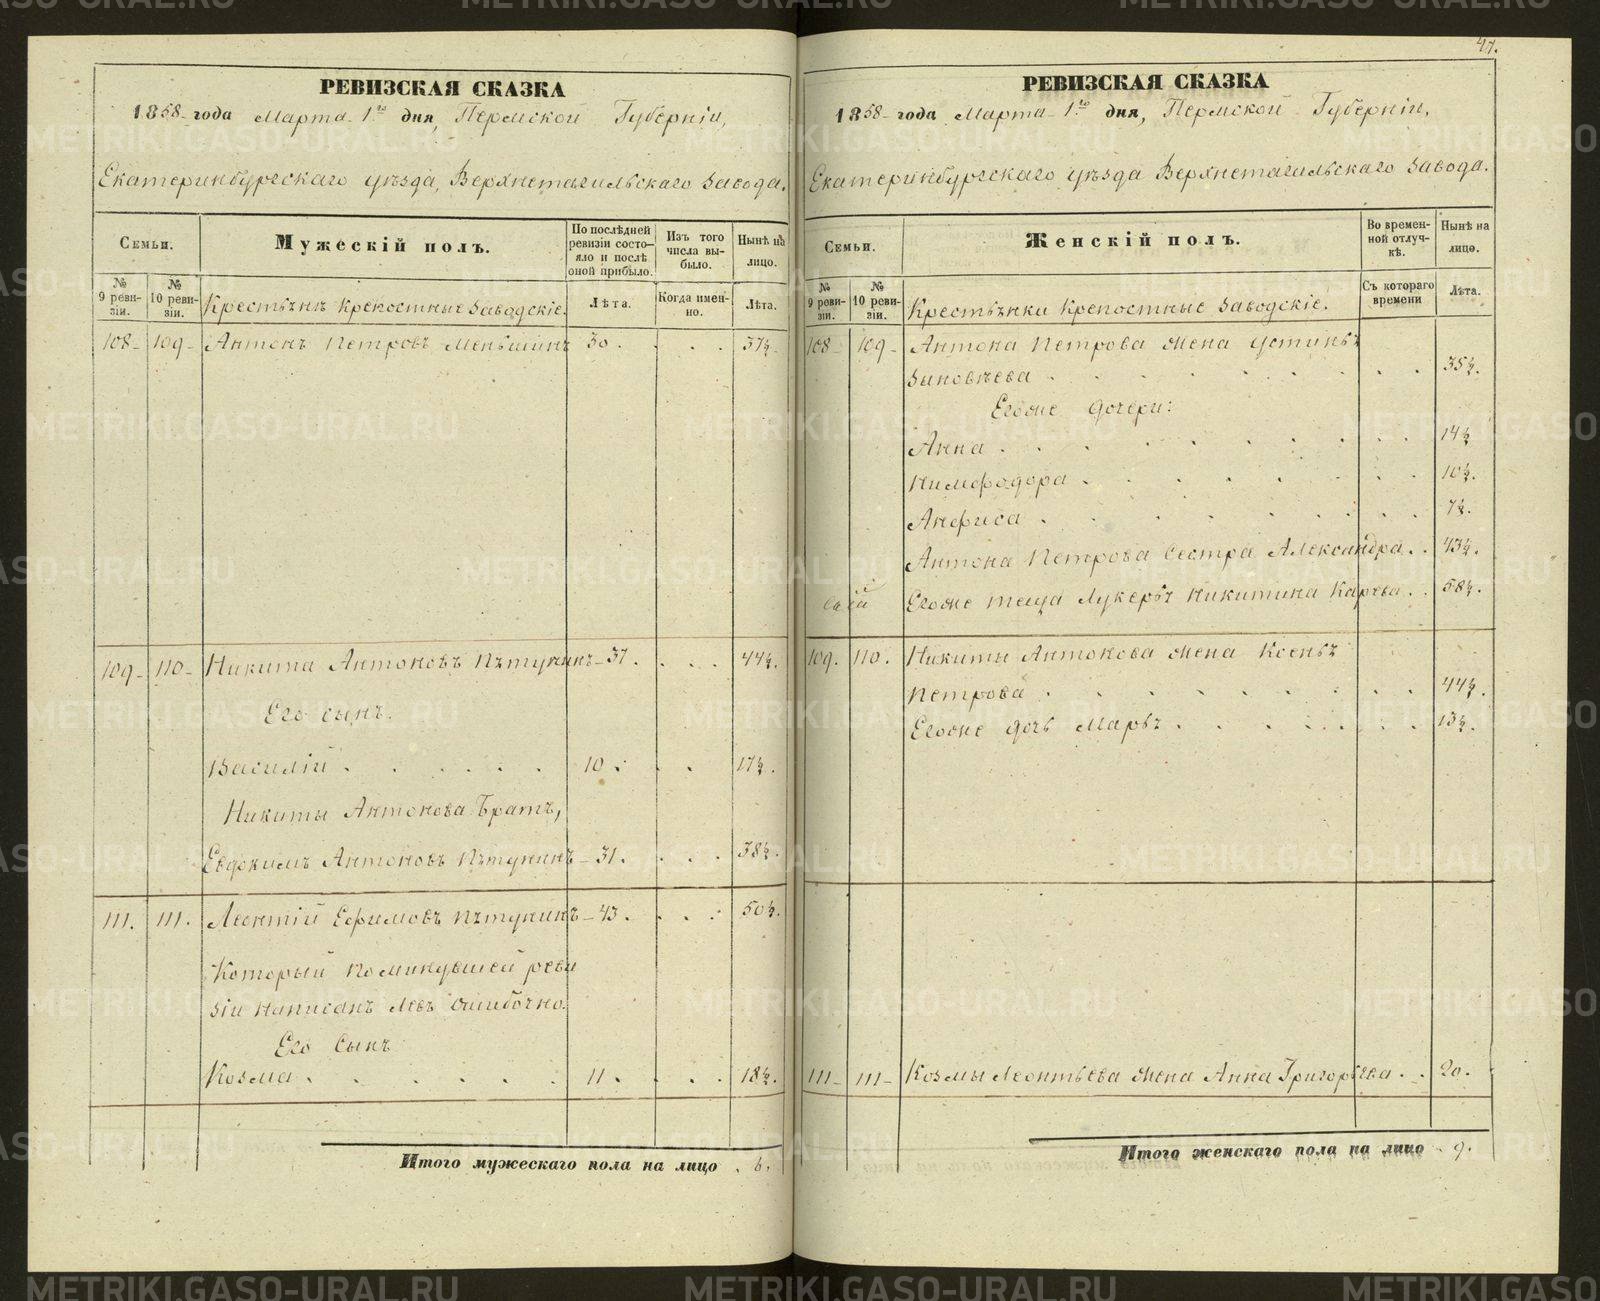 47.
РЕВИЗСКАЯ СКАЗКА
1858 года Марта 1го дня, Пермской Губерніи,
Екатеринбургскаго уѣзда, Верхнетагильскаго Завода.
Семьи.
Мужескій полъ.
По послѣдней ревизіи состояло и послѣ оной прибыло.
Изъ того числа выбыло.
Нынѣ на лицо.
№ 9 ревизіи.
№ 10 ревизіи.
Крестьянъ крепостныхъ Заводскіе.
Лѣта.
Когда именно.
Лѣта.
108 109 Антонъ Петровъ Меньшинъ 30. 37½.
109 110 Никита Антоновъ Пѣтунинъ 37. 44½.
Его сынъ.
Василій 10. 17½.
Никиты Антонова Братъ,
Евдокимъ Антоновъ Пѣтунинъ 31. 38½.
111. 111. Леонтій Ефимовъ Пѣтунинъ 43. 50½.
Который по минувшей реви
зіи написанъ Левъ ошибочно.
Его Сынъ
Козма 11. 18½.
Итого мужескаго пола на лицо 6.
РЕВИЗСКАЯ СКАЗКА
1858 года Марта 1го дня, Пермской Губерніи,
Екатеринбургскаго уѣзда Верхнетагильскаго Завода.
Семьи.
Женскій полъ.
Во временной отлучкѣ.
Нынѣ на лицо.
№ 9 ревизіи.
№ 10 ревизіи.
Крестьянки Крепостные Заводскіе.
Съ котораго времени
Лѣта.
108 109 Антона Петрова жена Устинья
Зиновьева 35½.
Егоже дочери:
Анна 14½
Нимфодора 10½.
Анфиса 7½.
Антона Петрова Сестра Александра 43½.
Егоже теща Лукерья Никитина Карева 58½.
109. 110. Никиты Антонова жена Ксенья
Петрова 44½.
Егоже дочь Марья 13½.
111 111 Козмы Леонтьева жена Анна Григорьева 20.
Итого женскаго пола на лицо 9.
METRIKI.GASO-URAL.RU